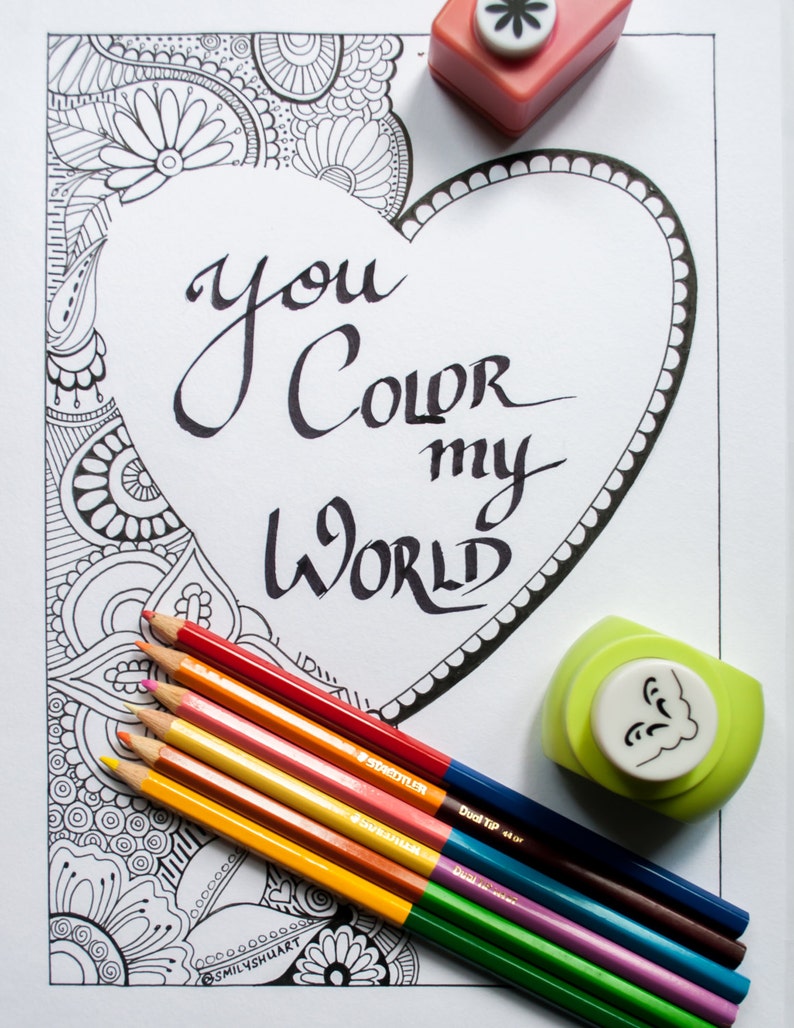 you
COLOR
my
WORLD
STAEDTLER
Dual Tip
STAEDTLER
Dual Tip
@SMILYSHUART